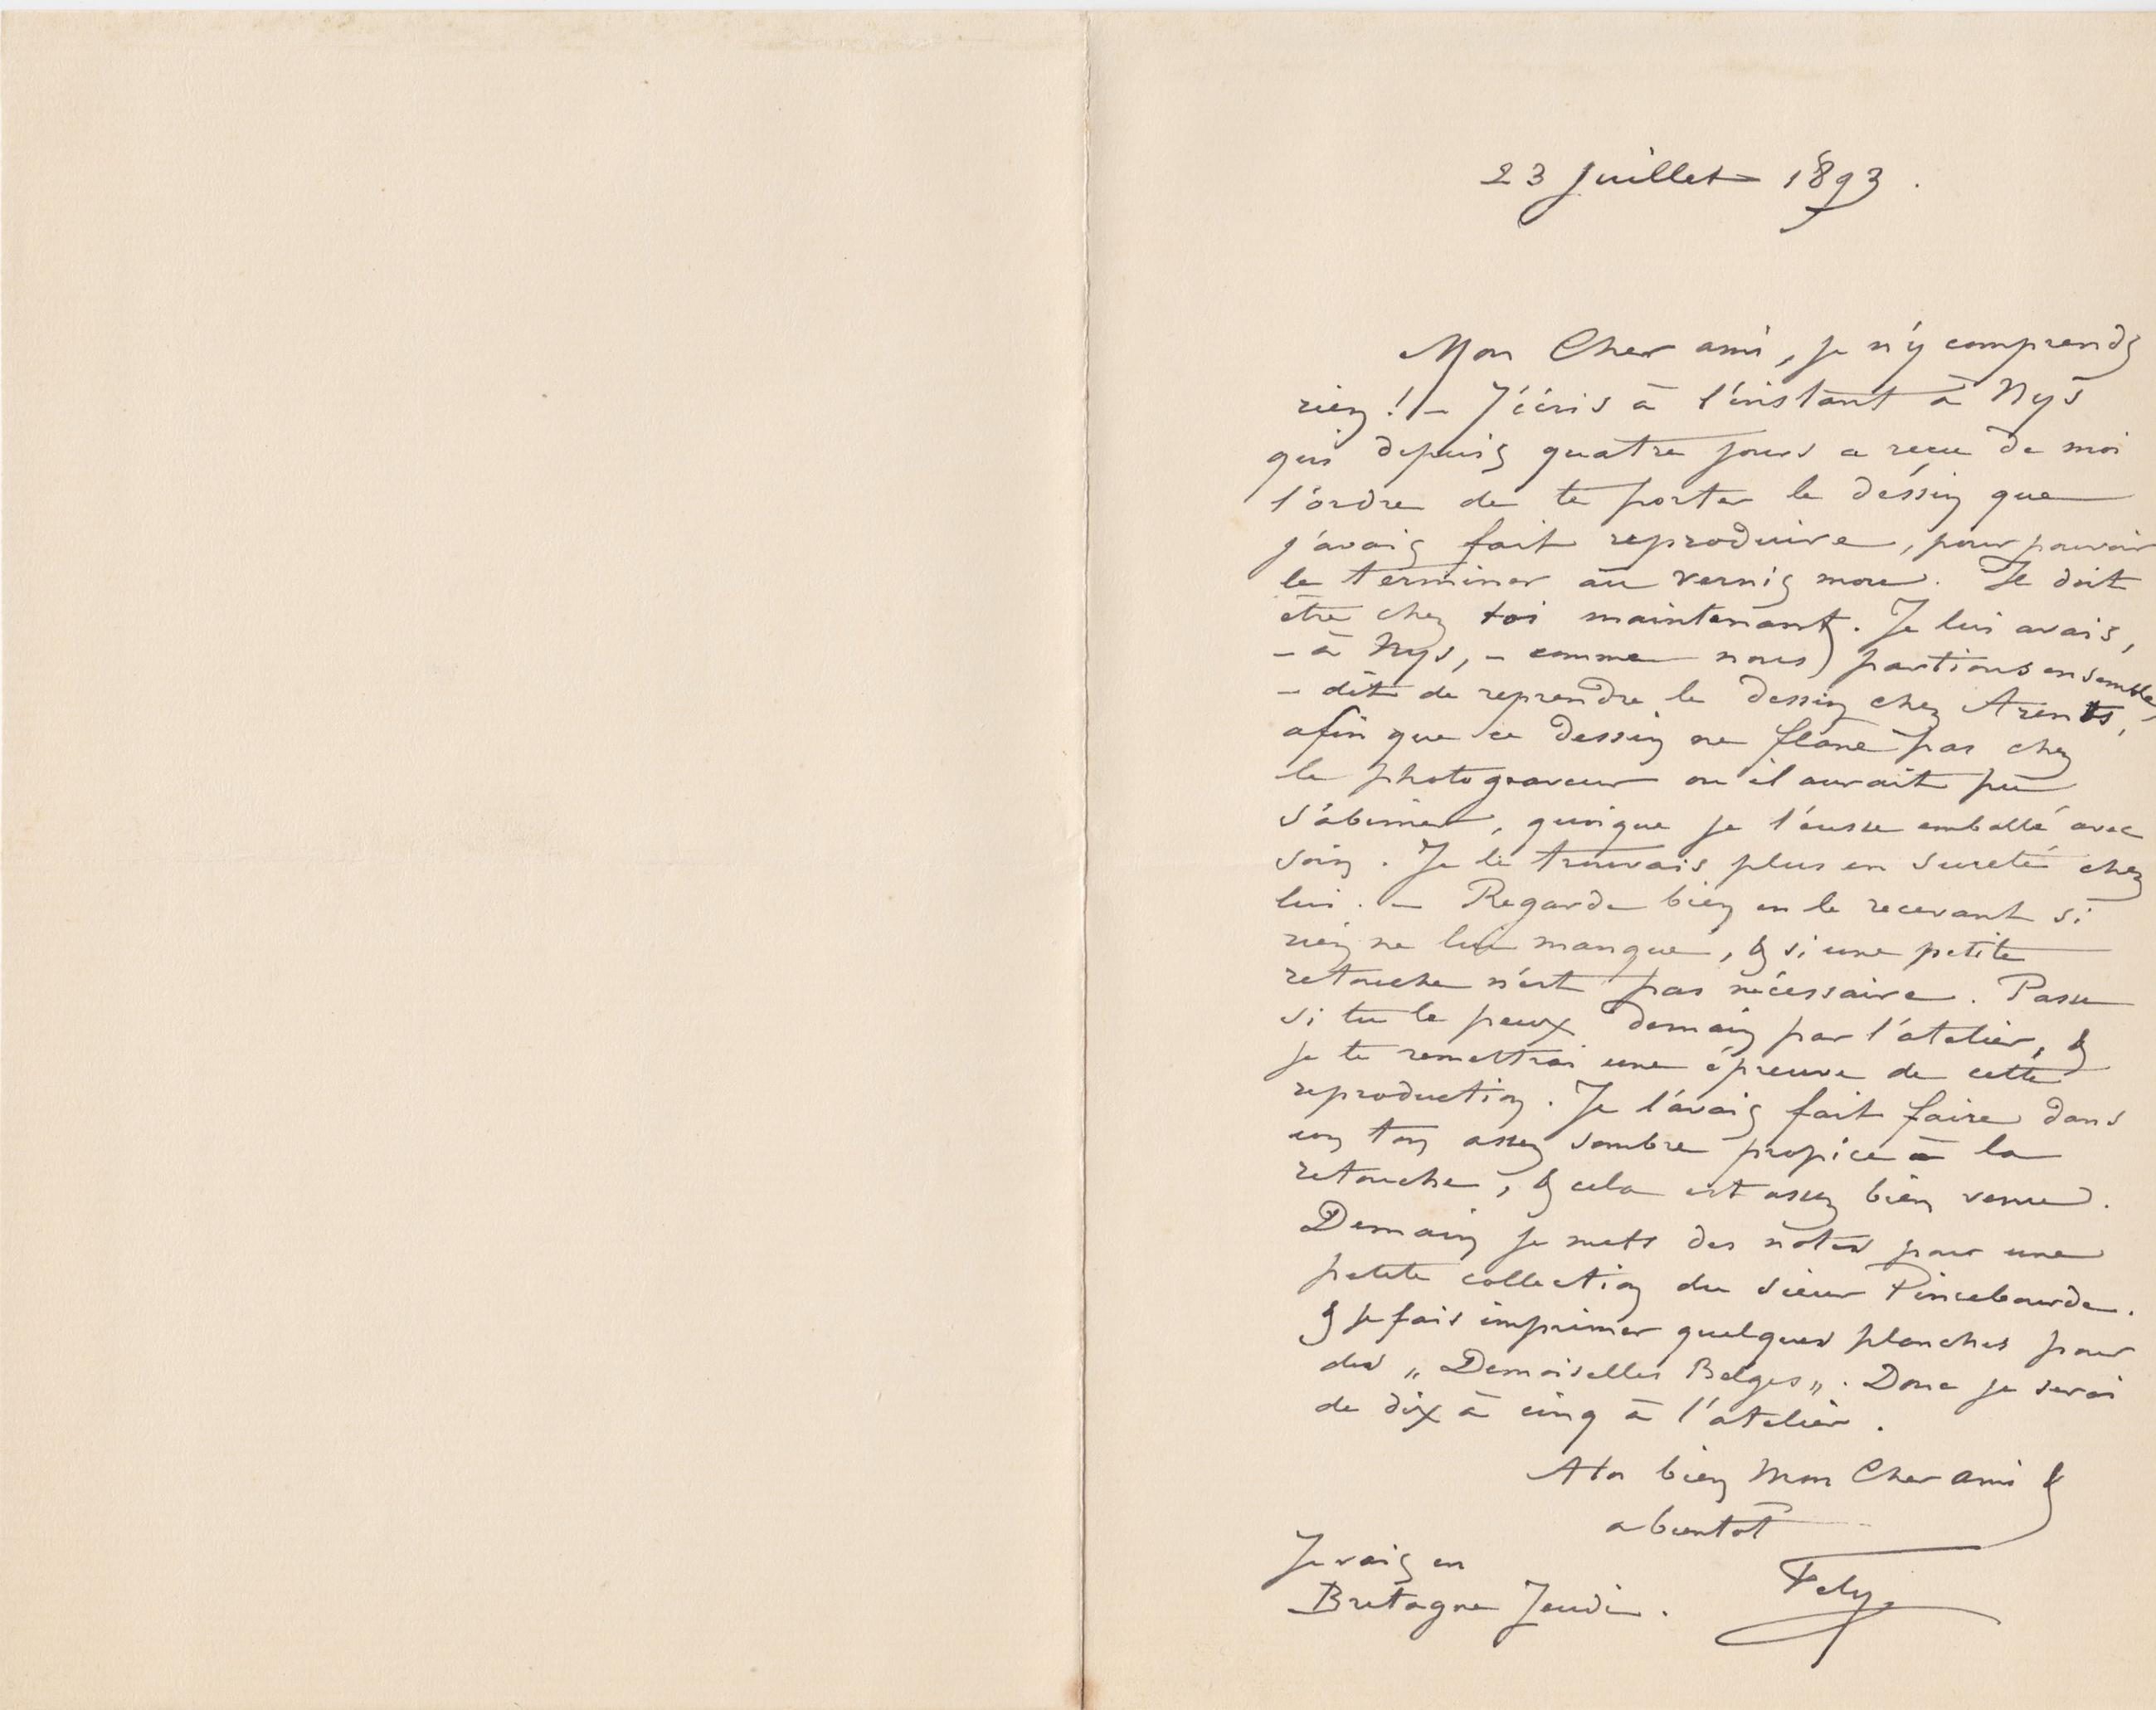 23 Juillet 1893.
Mon Cher ami, je n'y comprends
rien ! – J'écris à l'instant à Nys
qui depuis quatre jours a reçu de moi
l'ordre de te porter le déssin que
j'avais fait reproduire, pour pouvoir
le terminer au vernis mou. Il doit
être chez toi maintenant. Je lui avais,
– à Nys, – comme nous partions ensemble,
– dit de reprendre le dessin chez Arents,
afin que ce dessin ne flane pas chez
le photograveur ou il aurait pu
s'abimer, quoique je l'eusse emballé avec
soin. Je le trouvais plus en sureté chez
lui. – Regarde bien en le recevant si
rien ne lui manque, & si une petite
retouche n'est pas nécessaire. Passe
si tu le peux demain par l'atelier, &
je te remettrai une épreuve de cette
reproduction. Je l'avais fait faire dans
un ton assez sombre propice à la
retouche, & cela est assez bien venu.
Demain je mets des notes pour une
petite collection du sieur Pincebourde.
& je fais imprimer quelques planches pour
des „ Demoiselles Belges „. Donc je serai
de dix à cinq à l'atelier.
A toi bien Mon Cher ami &
a bientot
Fély
Je vais en
Bretagne Jeudi.